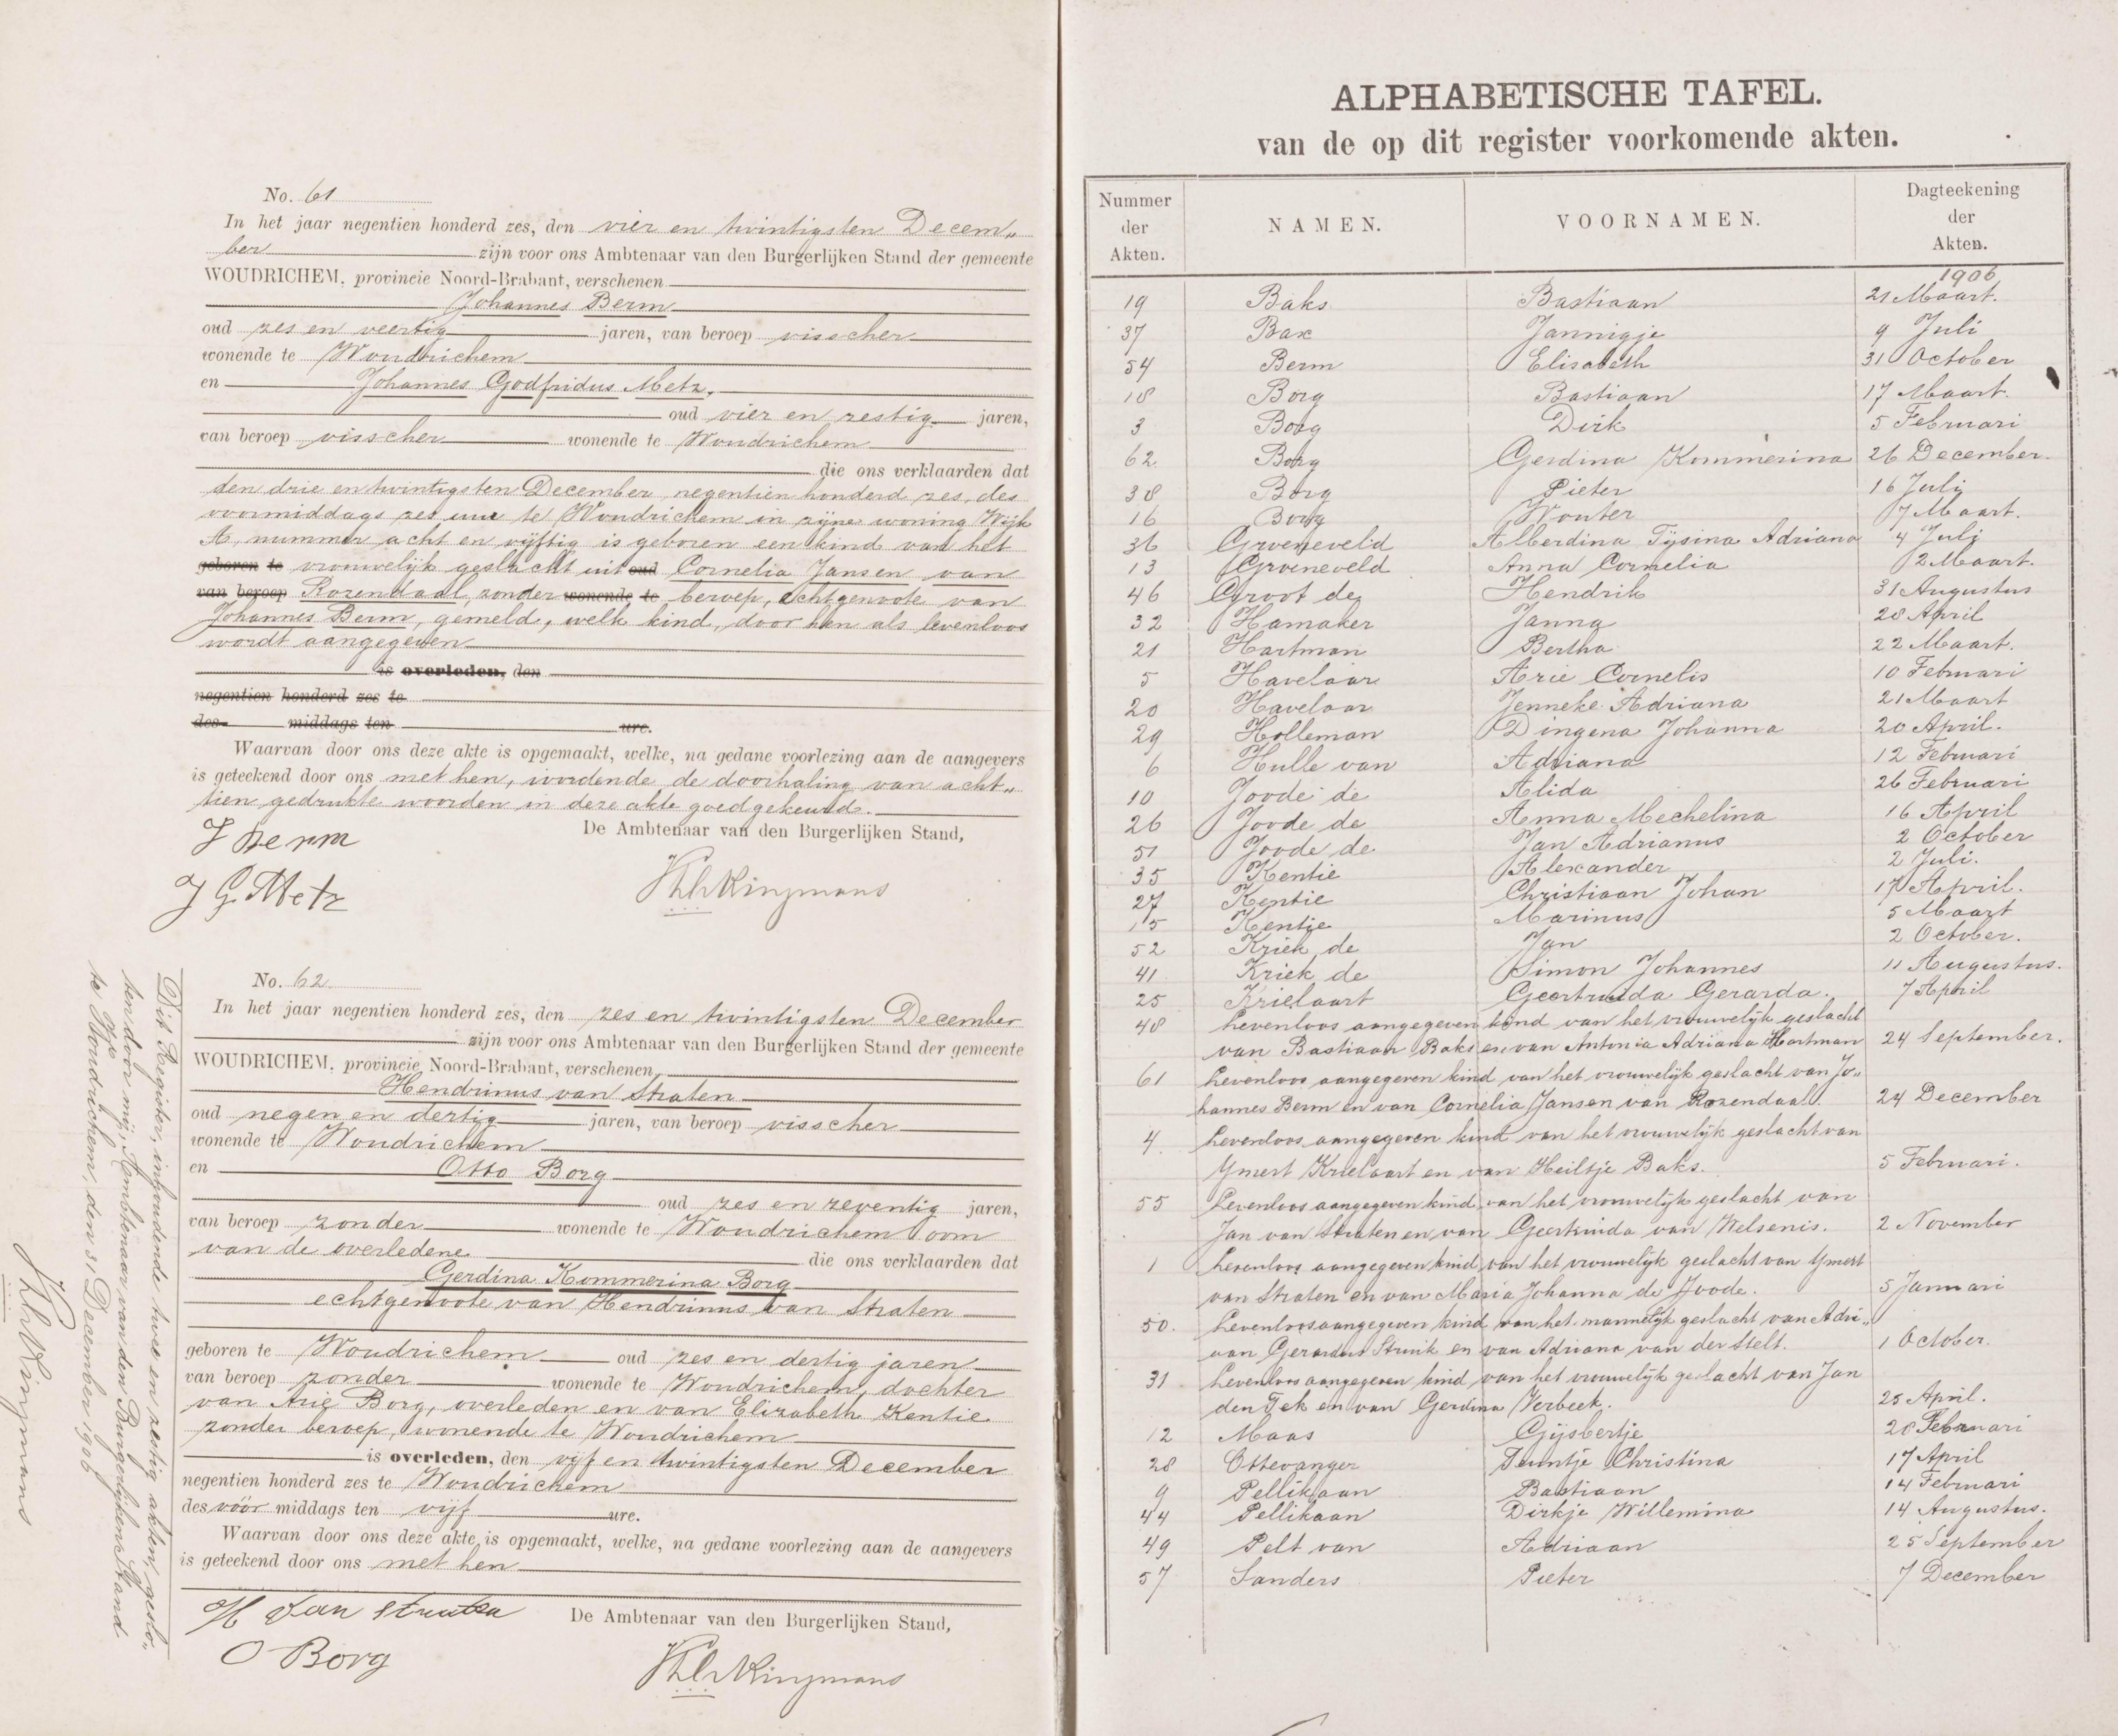 No. 61
In het jaar negentien honderd zes, den vier en twintigsten Decem„
ber zijn voor ons Ambtenaar van den Burgerlijken Stand der gemeente
WOUDRICHEM, provincie Noord-Brabant, verschenen
Johannes Berm
oud zes en veertig jaren, van beroep visscher
wonende te Woudrichem
en Johannes Godfridus Metz,
oud vier en zestig jaren,
van beroep visscher wonende te Woudrichem
die ons verklaarden dat
den drie en twintigsten December negentien honderd zes, des
voormiddags zes uur te Woudrichem in zijne woning Wijk
A, nummer acht en vijftig is geboren een kind van het
geboren te vrouwelijk geslacht uit oud Cornelia Jansen van
van beroep Rozendaal, zonder wonende te beroep, echtgenoote van
Johannes Berm, gemeld, welk kind, door hen als levenloos
wordt aangegeven
is overleden, den
negentien honderd zes te
des middags ten ure.
Waarvan door ons deze akte is opgemaakt, welke, na gedane voorlezing aan de aangevers
is geteekend door ons met hen, wordende de doorhaling van acht„
tien gedrukte woorden in deze akte goedgekeurd.
De Ambtenaar van den Burgerlijken Stand,
J Berm
J G Metz
No. 62
In het jaar negentien honderd zes, den zes en twintigsten December
zijn voor ons Ambtenaar van den Burgerlijken Stand der gemeente
WOUDRICHEM, provincie Noord-Brabant, verschenen,
Hendrinus van Straten
oud negen en dertig jaren, van beroep visscher
wonende te Woudrichem
en Otto Borg
oud zes en zeventig jaren,
van beroep zonder wonende te Woudrichem oom
van de overledene die ons verklaarden dat
Gerdina Kommerina Borg
echtgenoote van Hendrinus van Straten
geboren te Woudrichem oud zes en dertig jaren
van beroep zonder wonende te Woudrichem, dochter
van Arie Borg, overleden en van Elizabeth Kentie
zonder beroep, wonende te Woudrichem
is overleden, den vijf en twintigsten December
negentien honderd zes te Woudrichem
des vóór middags ten vijf ure.
Waarvan door ons deze akte is opgemaakt, welke, na gedane voorlezing aan de aangevers
is geteekend door ons met hen
H van Straten
De Ambtenaar van den Burgerlijken Stand,
O Borg
Dit Register, inhoudende twee en zestig akten, geslo„
ten door mij, Ambtenaar van den Burgerlijken Stand
te Woudrichem, den 31 December 1906
ALPHABETISCHE TAFEL.
van de op dit register voorkomende akten.
Nummer der Akten. NAMEN. VOORNAMEN. Dagteekening der Akten.
1906
19 Baks Bastiaan 21 Maart.
37 Bax Jannigje 9 Juli
54 Berm Elisabeth 31 October
18 Borg Bastiaan 17 Maart.
3 Borg Dirk 5 Februari
62 Borg Gerdina Kommerina 26 December.
38 Borg Pieter 16 Juli
16 Borg Wouter 7 Maart.
36 Groeneveld Alberdina Tijsina Adriana 4 Juli
13 Groeneveld Anna Cornelia 2 Maart.
46 Groot de Hendrik 31 Augustus
32 Hamaker Janna 28 April
21 Hartman Bertha 22 Maart.
5 Havelaar Arie Cornelis 10 Februari
20 Havelaar Jenneke Adriana 21 Maart
29 Holleman Dingena Johanna 20 April.
6 Hulle van Adriana 12 Februari
10 Joode de Alida 26 Februari
26 Joode de Anna Mechelina 16 April
51 Joode de Jan Adrianus 2 October
35 Kentie Alexander 2 Juli.
27 Kentie Christiaan Johan 17 April.
15 Kentie Marinus 5 Maart
52 Kriek de Jan 2 October.
41 Kriek de Simon Johannes 11 Augustus.
25 Krielaart Geertruida Gerarda. 7 April
48 Levenloos aangegeven kind van het vrouwelijk geslacht
van Bastiaan Baks en van Antonia Adriana Hartman 24 September.
61 Levenloos aangegeven kind van het vrouwelijk geslacht van Jo„
hannes Berm en van Cornelia Jansen van Rozendaal 24 December
4 Levenloos aangegeven kind van het vrouwelijk geslacht van
Ymert Krielaart en van Heiltje Baks. 5 Februari.
55 Levenloos aangegeven kind van het vrouwelijk geslacht van
Jan van Straten en van Geertruida van Welsenis. 2 November
1 Levenloos aangegeven kind van het vrouwelijk geslacht van Ymert
van Straten en van Maria Johanna de Joode. 5 Januari
50. Levenloos aangegeven kind van het mannelijk geslacht van Adri„
aan Gerardus Struik en van Adriana van der Stelt. 1 October.
31 Levenloos aangegeven kind van het vrouwelijk geslacht van Jan
den Tek en van Gerdina Verbeek. 25 April.
12 Maas Gijsbertje 28 Februari
28 Ottevanger Teuntje Christina 17 April
9 Pellikaan Bastiaan 14 Februari
44 Pellikaan Dirkje Willemina 14 Augustus.
49 Pelt van Adriaan 25 September
57 Sanders Pieter 7 December